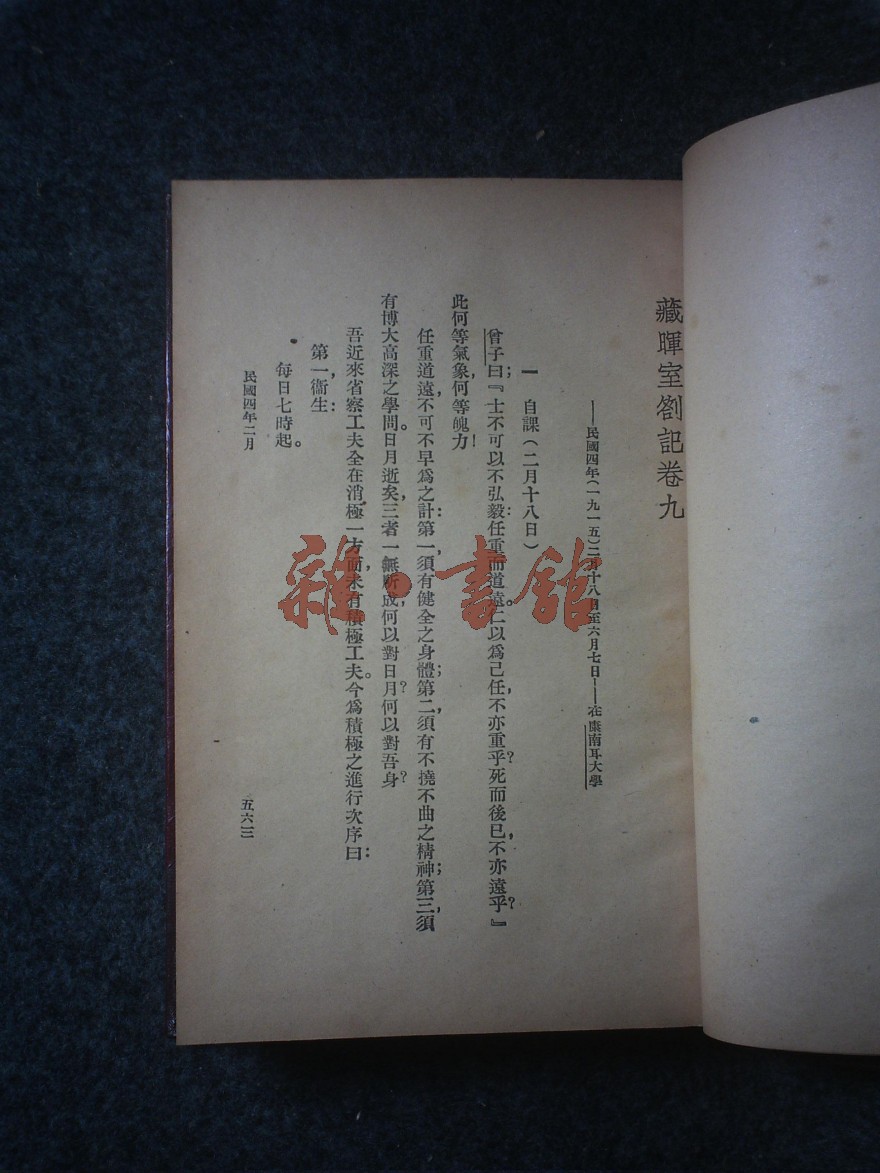 藏暉室劄記卷九
——民國四年(一九一五)二月十八日至六月七日——在康南耳大學
一 自課(二月十八日)
曾子曰;『士不可以不弘毅:任重而道遠。仁以爲己任,不亦重乎?死而後已,不亦遠乎?』
此何等氣象,何等魄力!
任重道遠,不可不早爲之計:第一,須有健全之身體;第二,須有不撓不曲之精神;第三,須
有博大高深之學問。日月逝矣,三者一無所成,何以對日月?何以對吾身?
吾近來省察工夫全在消極一方面,未有積極工夫。今爲積極之進行次序曰:
第一,衞生:
每日七時起。
民國四年二月
五六三
雜·書館